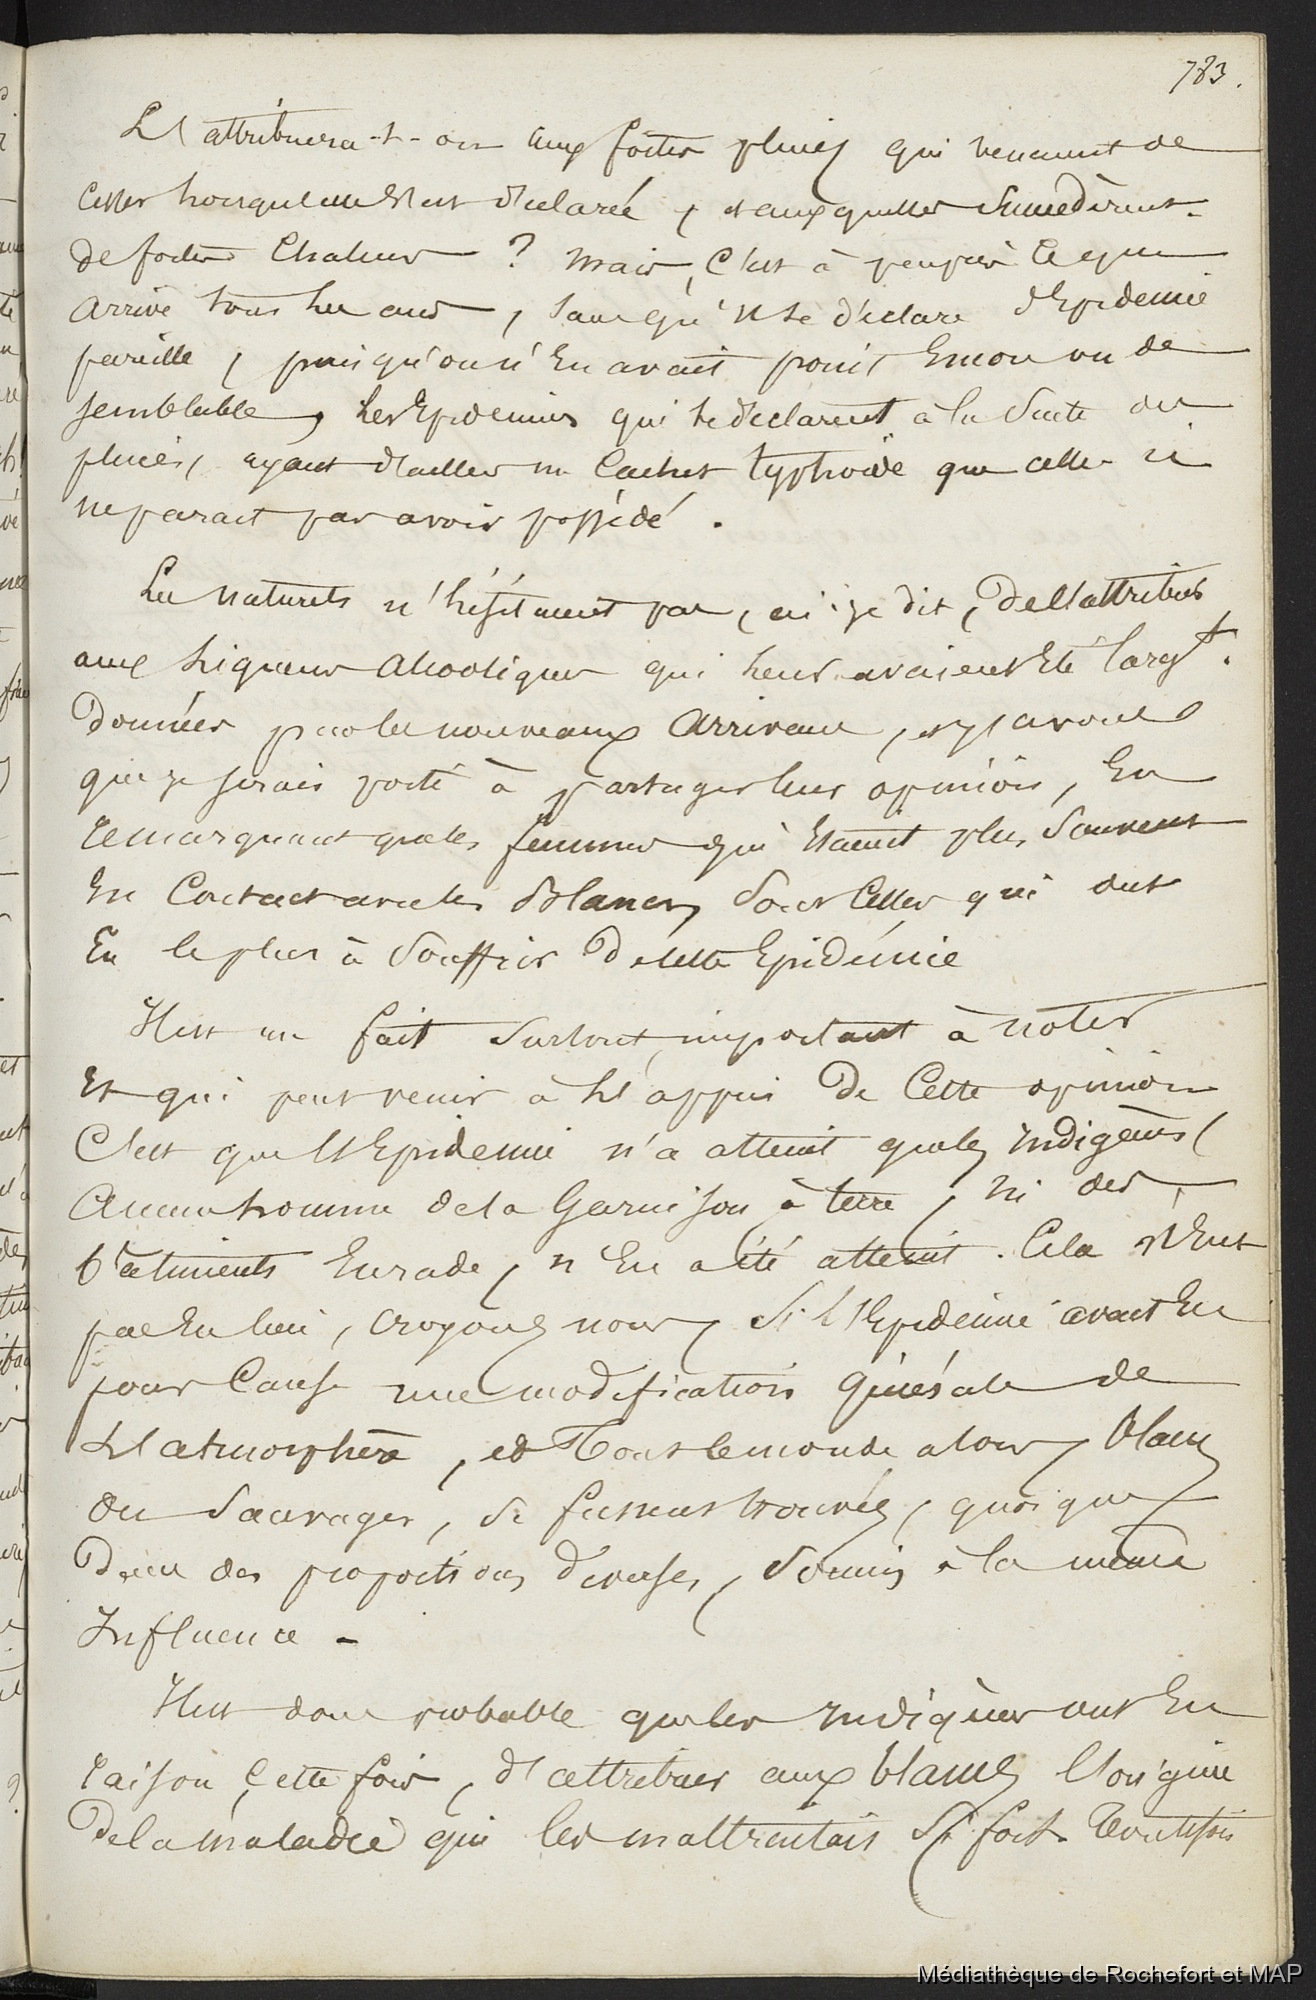 783.
L'attribuera-t-on aux fortes pluies qui venaient de
cesser lorsqu'elle s'est déclarée, et auxquelles succedèrent
de fortes chaleurs ? mais, c'est à peu près ce qui
arrive tous les ans, sans qu'il se déclare d'Epidemie
pareille, puisqu'on n'en avait point encore vu de
semblable, les Epidemies qui se déclarent à la suite des
pluies, ayant d'ailleurs un cachet typhoïde que celle ci
ne parait pas avoir possédé.
Les naturels n'hésitaient pas, ai-je dit, de l'attribuer
aux liqueurs alcooliques qui leur avaient été largt.
données par les nouveaux arrivans, et j'avoue
que je serais porté à partager leur opinion, en
remarquant que les femmes qui étaient plus souvent
en contact avec les Blancs, sont celles qui ont
eu le plus à souffrir de cette Epidémie
Il est un fait surtout important à noter
et qui peut venir à l'appui de cette opinion
c'est que l'Epidemie n'a atteint que les indigènes,
aucun homme de la garnison à terre, ni des
bâtiments en rade, n'en a été atteint. Cela n'eut
pas eu lieu, croyons nous, si l'Epidémie avait eu
pour cause une modification générale de
l'atmosphère, et tout le monde alors, blancs
ou sauvages, se fussent trouvés, quoique
dans des proportions diverses, soumis à la même
influence -
Il est donc probable que les indigènes ont eu
raison cette fois, d'attribuer aux blancs l'origine
de la maladie qui les maltraitait si fort. Toutefois
Médiathèque de Rochefort et MAP